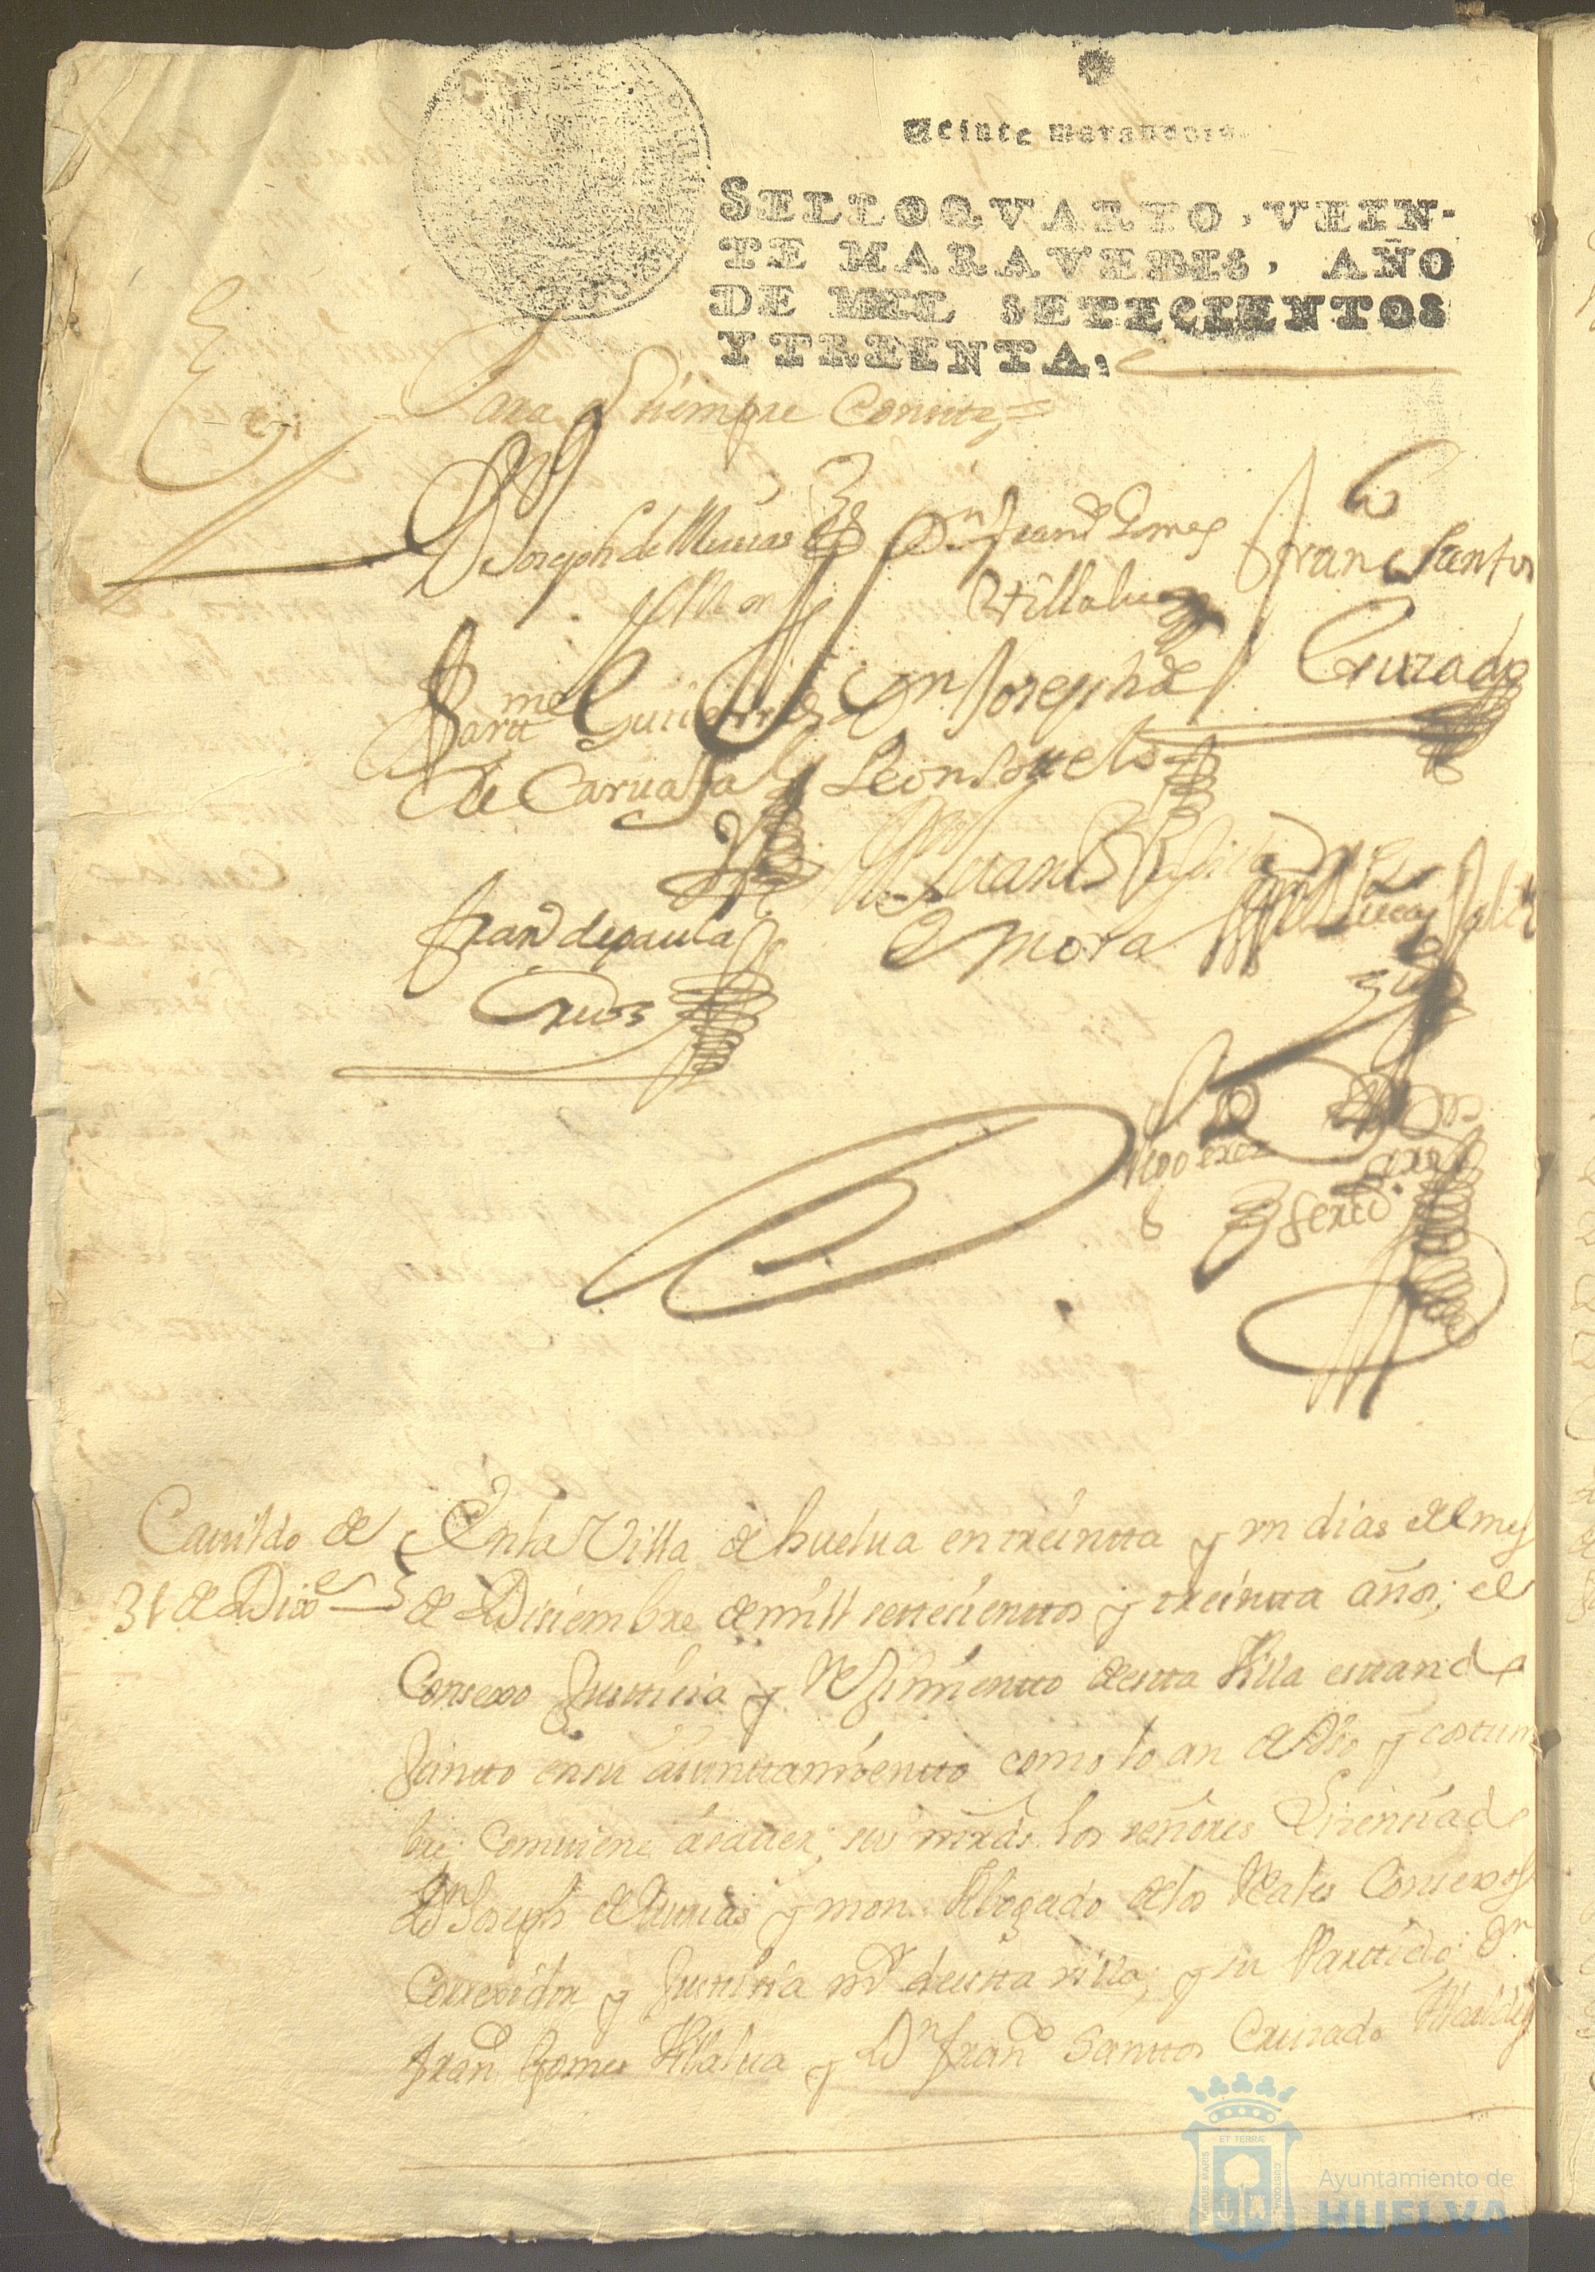 Veinte maravedis
SELLO QVARTO, VEIN-
TE MARAVEDIS, AÑO
DE MIL SETECIENTOS
Y TREINTA.
Para Siempre Conste
Dn Joseph de
Dn Franco Gomes
Villalua
Franco Santos
Cruzado
Barme Gutierres
de Caruajal
Dn Joseph de
Leon Soutelo
Franco
Mora
Lucas
Franco de paula
Cruz
Cauildo de
31 de Dize
En la Villa de huelua en treintta y un dias del mes
de Disiembre de mill settesienttos y treintta años; el
Consexo Justticia y Rexímientto destta Villa estando
Juntto en su aiunttamientto como lo an de vso y costum
bre; comuiene á sauer, sus mrds. los señores Lisensiado
Dn Joseph de Murias y mon Abogado de los Reales Consexos
Correxidor y Justticia mr destta villa, y su Parttido Dn
Franco Gomes Villalua y Dn Franco Santtos Cruzado Alcaldes
PORTUS MARIS
ET TERRÆ
CUSTODIA
Ayuntamiento de
HUELVA